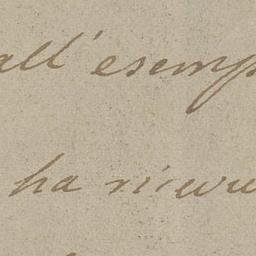 all' esemp
ha ricevu